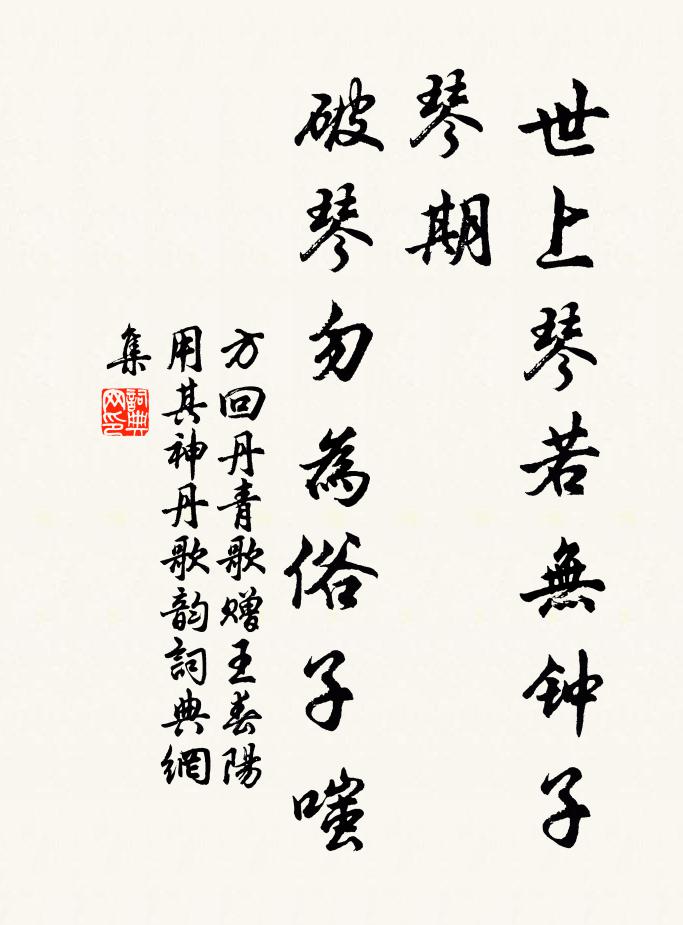 世上琴若無钟子
琴期
破琴勿為俗子嗤
方回丹青歌赠王春陽
用其神丹歌韵詞典網
集
詞典
网印